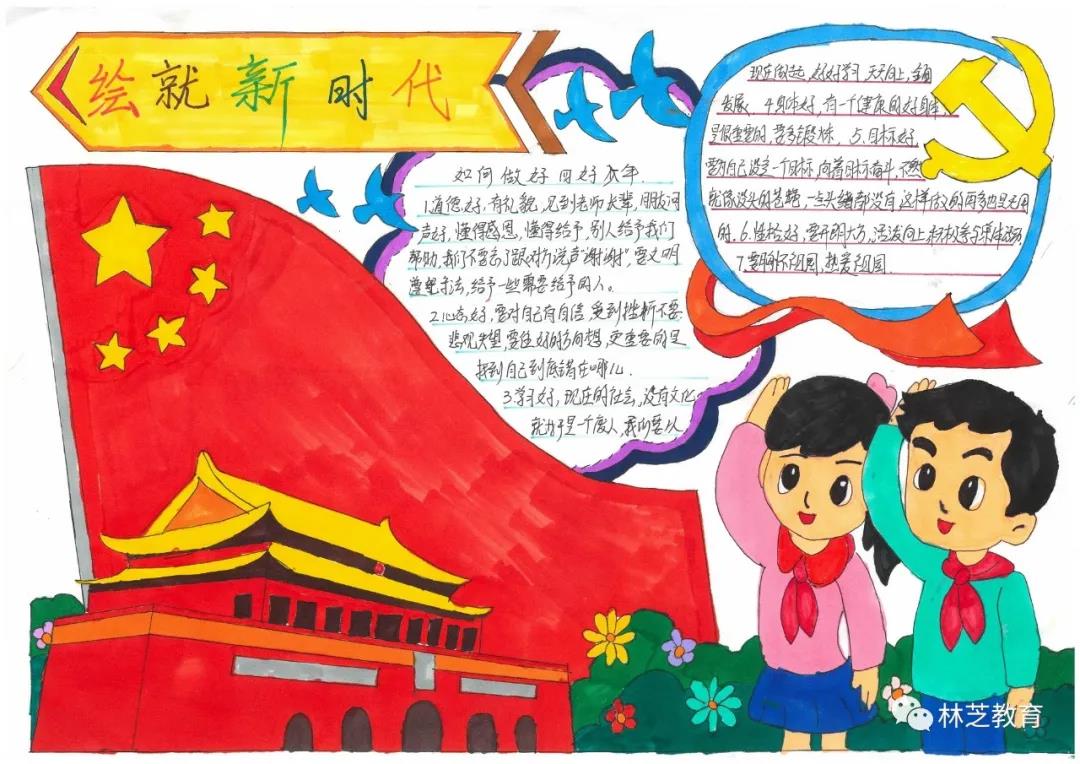 绘就新时代
如何做好四好少年
1.道德好,有礼貌,见到老师长辈,朋友问
声好,懂得感恩,懂得给予,别人给予我们
帮助,我们不要忘了跟对方说声"谢谢",要文明
遵纪守法,给予一些需要给予的人。
2.心态好,要对自己有自信,受到挫折不要
悲观失望,要往好的方向想,更重要的是
找到自己到底错在哪儿.
3.学习好,现在的社会,没有文化
就等于是一个废人,我们要从
现在做起,好好学习,天天向上,全面
发展. 4.身体好,有一个健康的好身体
是很重要的,要多锻炼. 5.目标好
要为自己设定一个目标,向着目标奋斗,不然
就像没头的苍蝇,一点头绪都没有,这样做的再多也是无用
的. 6.性格好,要开朗大方,活泼向上,积极参与集体活动.
7.要胸怀祖国,热爱祖国.
林芝教育